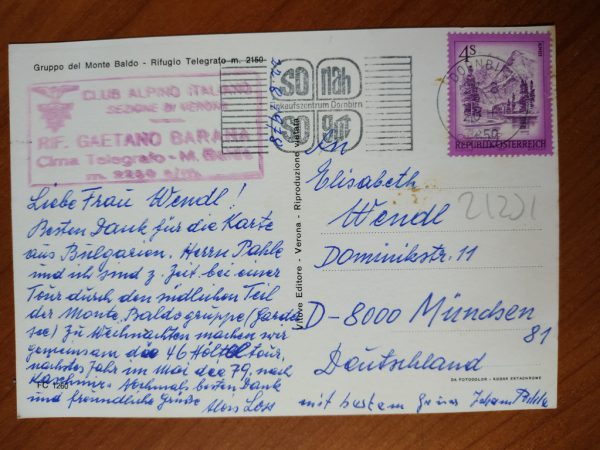 Gruppo del Monte Baldo - Rifugio Telegrafo m. 2150
CLUB ALPINO ITALIANO
SEZIONE DI VERONA
RIF. GAETANO BARANA
Cima Telegrafo - M. Baldo
m. 2250 s/m.
Liebe Frau Wendl!
Besten Dank für die Karte
aus Bulgarien. Herrn Pahle
und ich sind z. Zeit bei einer
Tour durch den südlichen Teil
der Monte Baldogruppe (Garda
see) Zu Weihnachten machen wir
gemeinsam die 46
nächstes Jahr im Mai des 79, nach
Nochmals besten Dank
und freundliche Grüße
Alois Loss
FC 1260
Vitore Editore - Verona - Riproduzione vietata
so nah
Einkaufszentrum Dornbirn
so gut
DORNBIRN
4S
REPUBLIK ÖSTERREICH
An
Elisabeth
Wendl
21201
Dominikstr. 11
D-8000 München
81
Deutschland
DA FOTOCOLOR - KODAK EKTACHROME
mit bestem Gruss Johann